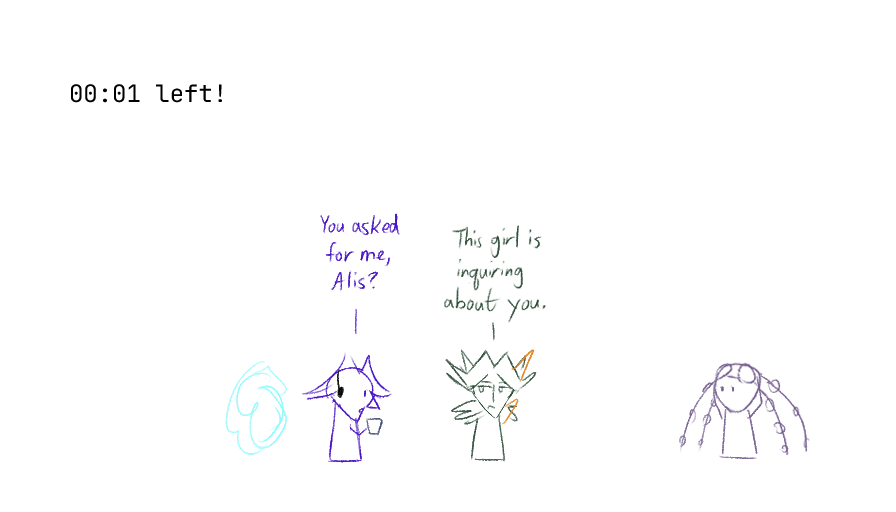 00:01 left!
You asked
for me,
Alis?
This girl is
inquiring
about you.